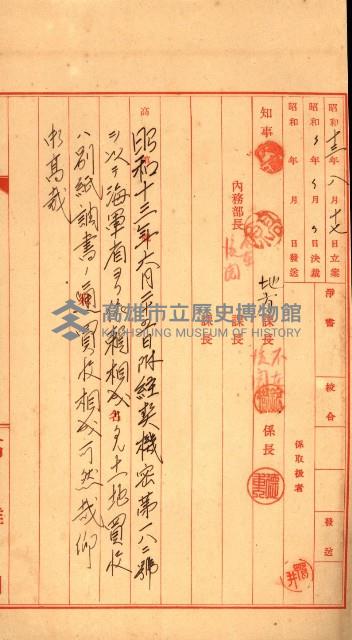 昭和十三年八月十七日立案
昭和 年 月 日決裁
昭和 年 月 日發送
淨書
校合
發送
係取扱者
知事
內務部長
地方課長
課長
課長
係長
高
昭和十三年六月二五日附經契機密第一八二號
ヲ以テ海軍省ヨリ依賴相成タル土地買收
ハ別紙調書ノ通買收相成可然哉仰
高裁
高雄市立歷史博物館
KAOHSIUNG MUSEUM OF HISTORY